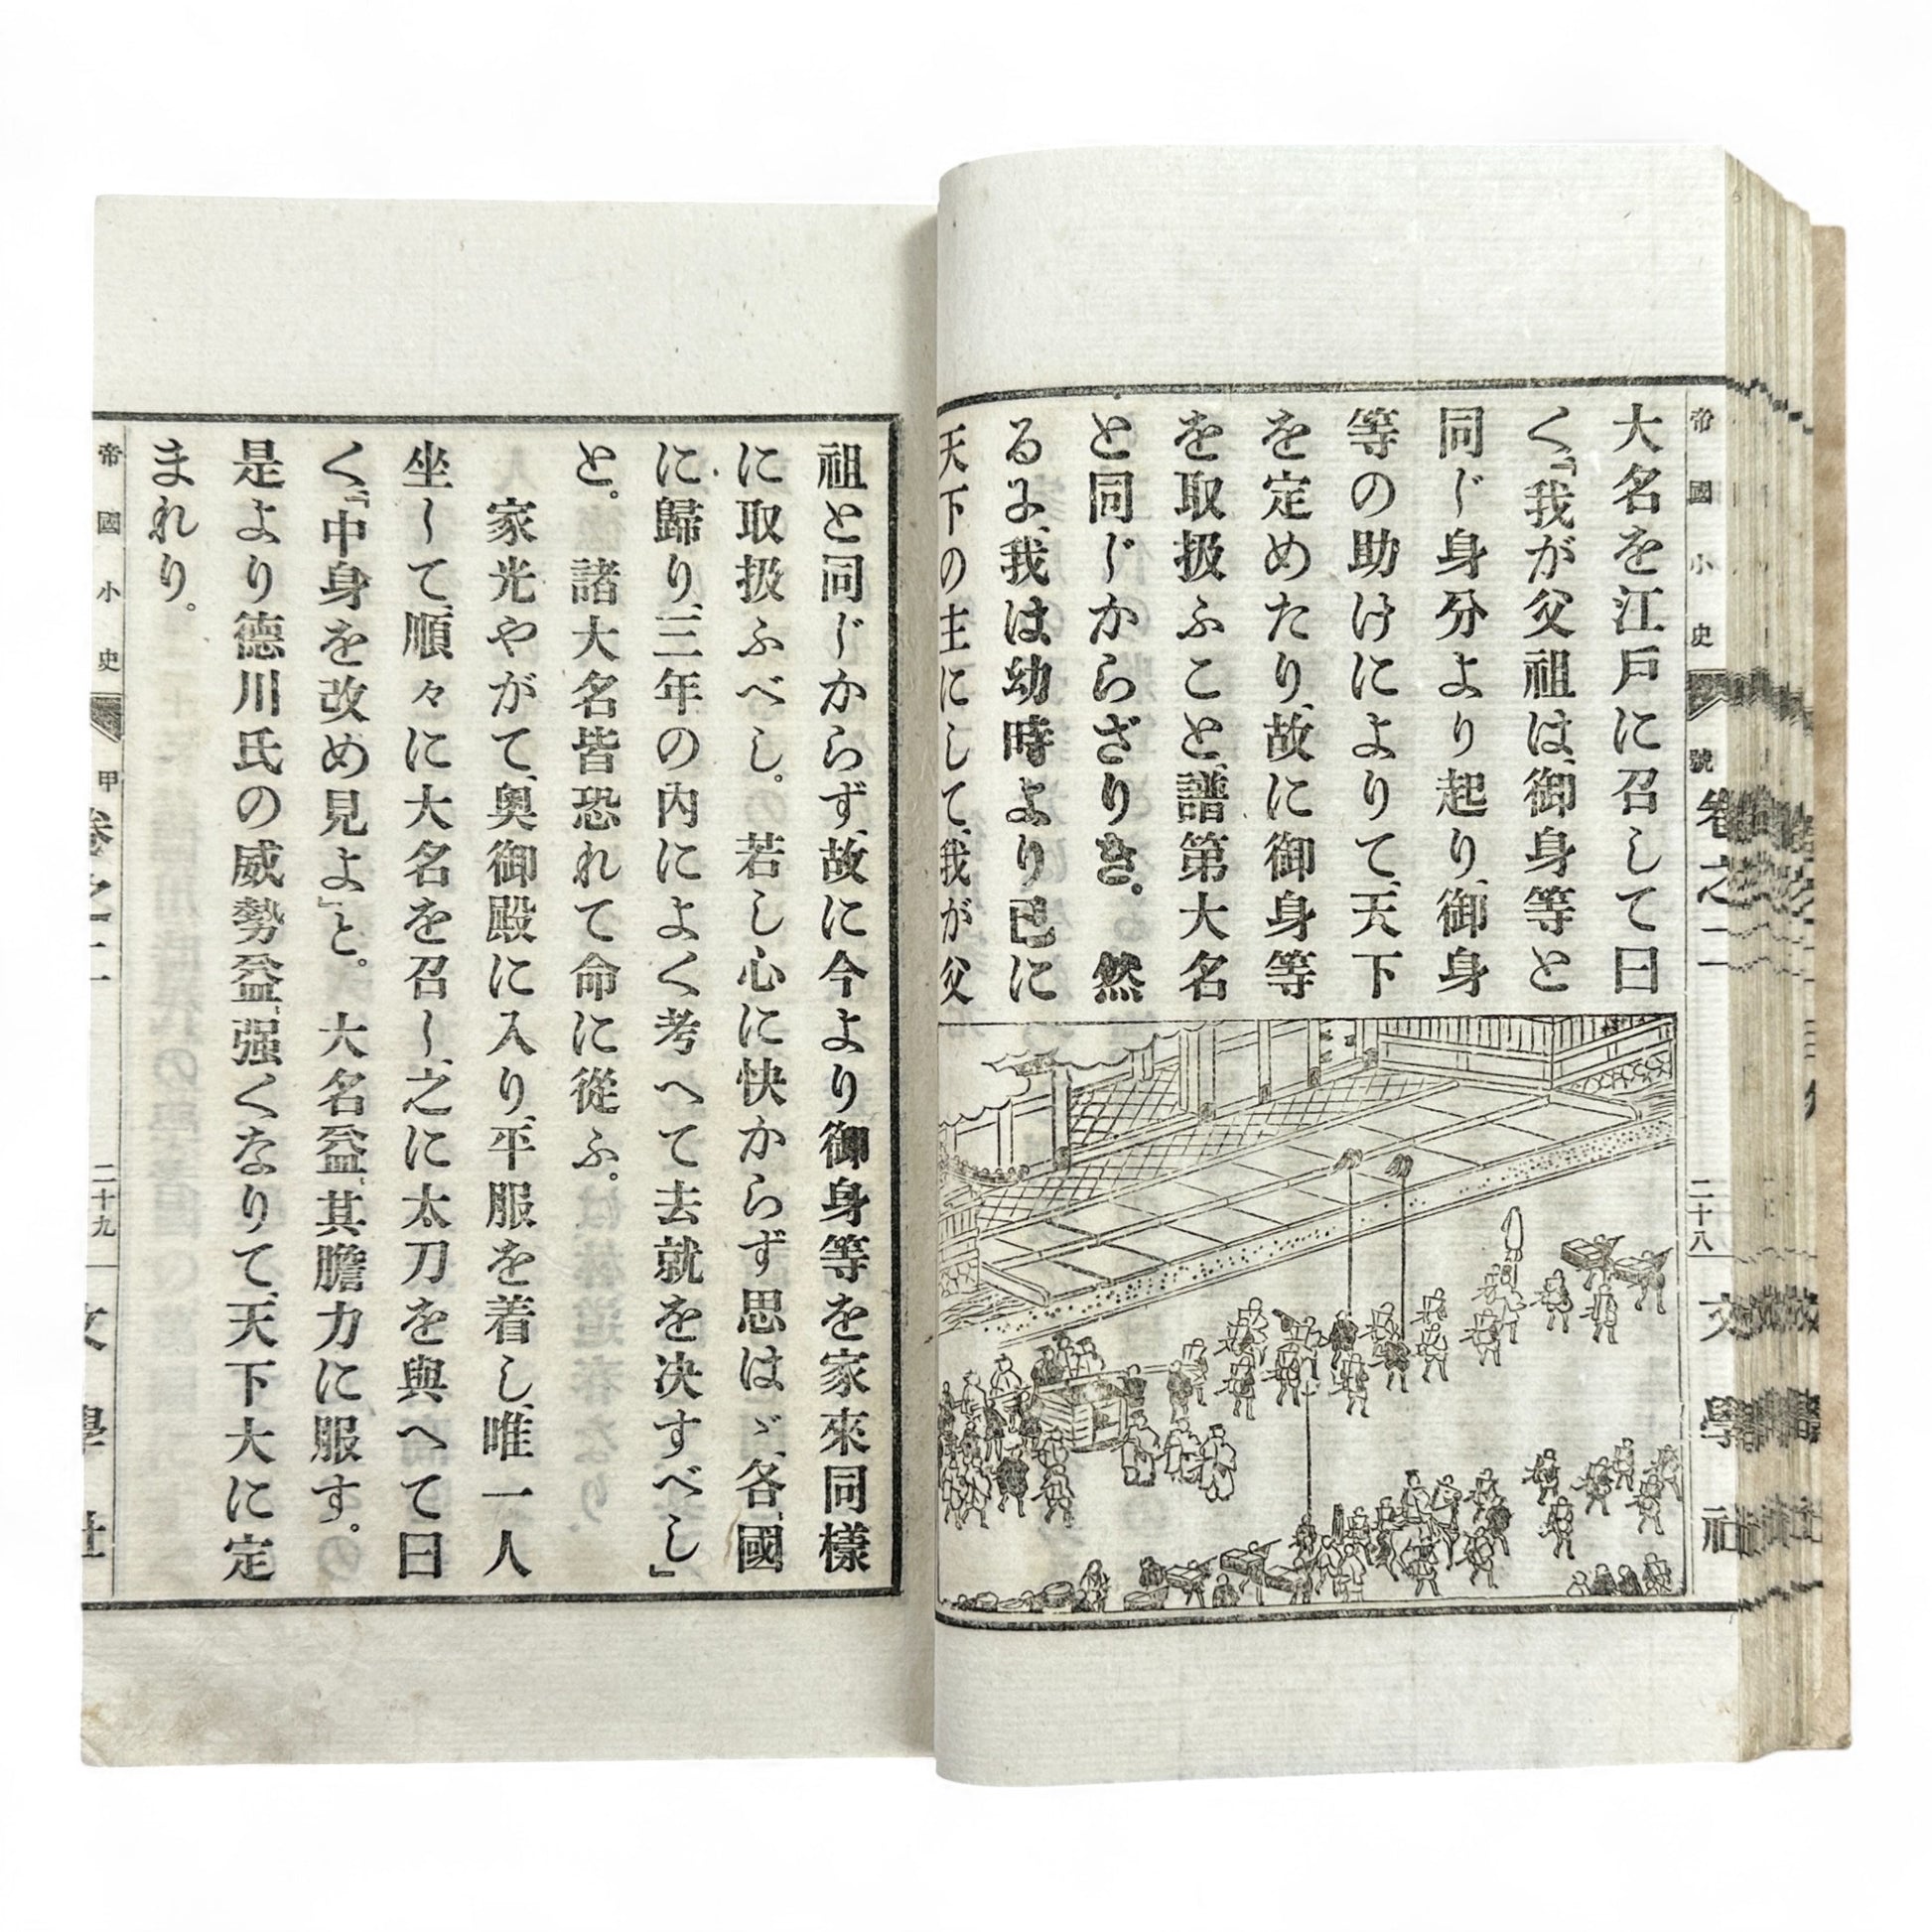 帝國小史
號
卷之二
二十八
文學社
大名を江戶に召して曰
く、「我が父祖は、御身等と
同じ身分より起り、御身
等の助けによりて、天下
を定めたり、故に御身等
を取扱ふこと、譜第大名
と同じからざりき。然
るに、我は幼時より已に
天下の主にして、我が父
祖と同じからず、故に今より御身等を家來同樣
に取扱ふべし。若し心に快からず思はゞ、各、國
に歸り、三年の內によく考へて去就を決すべし」
と。諸大名皆恐れて命に從ふ。
家光やがて、奧御殿に入り、平服を着し、唯一人
坐して、順々に大名を召し、之に太刀を與へて曰
く、「中身を改め見よ」と。大名益、其膽力に服す。
是より德川氏の威勢益、强くなりて、天下大に定
まれり。
帝國小史
甲
卷之二
二十九
文學社